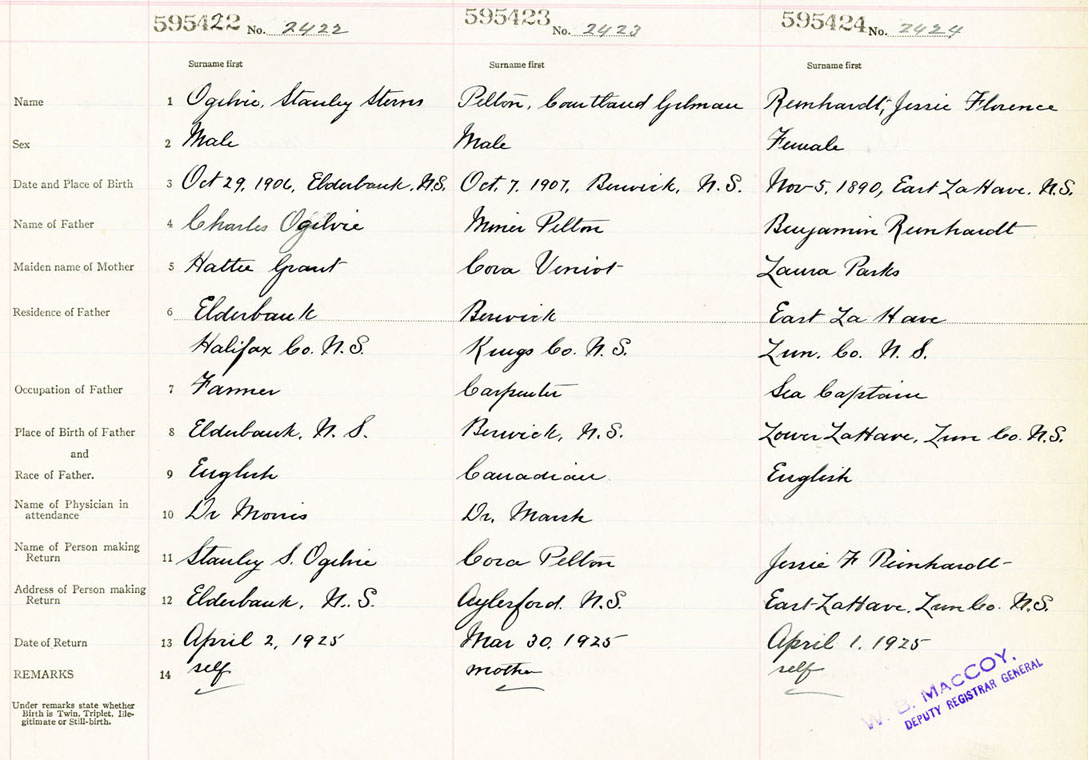 595422 No. 2422 595423 No. 2423 595424 No. 2424
Surname first Surname first Surname first
Name 1 Ogilvie, Stanley Sterns Pelton, Courtland Gilman Reinhardt, Jessie Florence
Sex 2 Male Male Female
Date and Place of Birth 3 Oct 29, 1906, Elderbank, N.S. Oct. 7, 1907, Berwick, N.S. Nov 5, 1890, East LaHave, N.S.
Name of Father 4 Charles Ogilvie Miner Pelton Benjamin Reinhardt
Maiden name of Mother 5 Hattie Grant Cora Veniot Laura Parks
Residence of Father 6 Elderbank Berwick East La Have
Halifax Co. N.S. Kings Co. N.S. Lun. Co. N. S.
Occupation of Father 7 Farmer Carpenter Sea Captain
Place of Birth of Father 8 Elderbank, N. S. Berwick, N.S. Lower LaHave, Lun Co. N.S.
and
Race of Father. 9 English Canadian English
Name of Physician in
attendance 10 Dr Morris Dr.
Name of Person making
Return 11 Stanley S. Ogilvie Cora Pelton Jessie F Reinhardt
Address of Person making
Return 12 Elderbank, N.S. Aylesford. N.S. East LaHave, Lun Co. N.S.
Date of Return 13 April 2, 1925 Mar 30, 1925 April 1, 1925
REMARKS 14 self mother self
Under remarks state whether
Birth is Twin, Triplet, Ille-
gitimate or Still-birth.
W. B. MacCOY,
DEPUTY REGISTRAR GENERAL